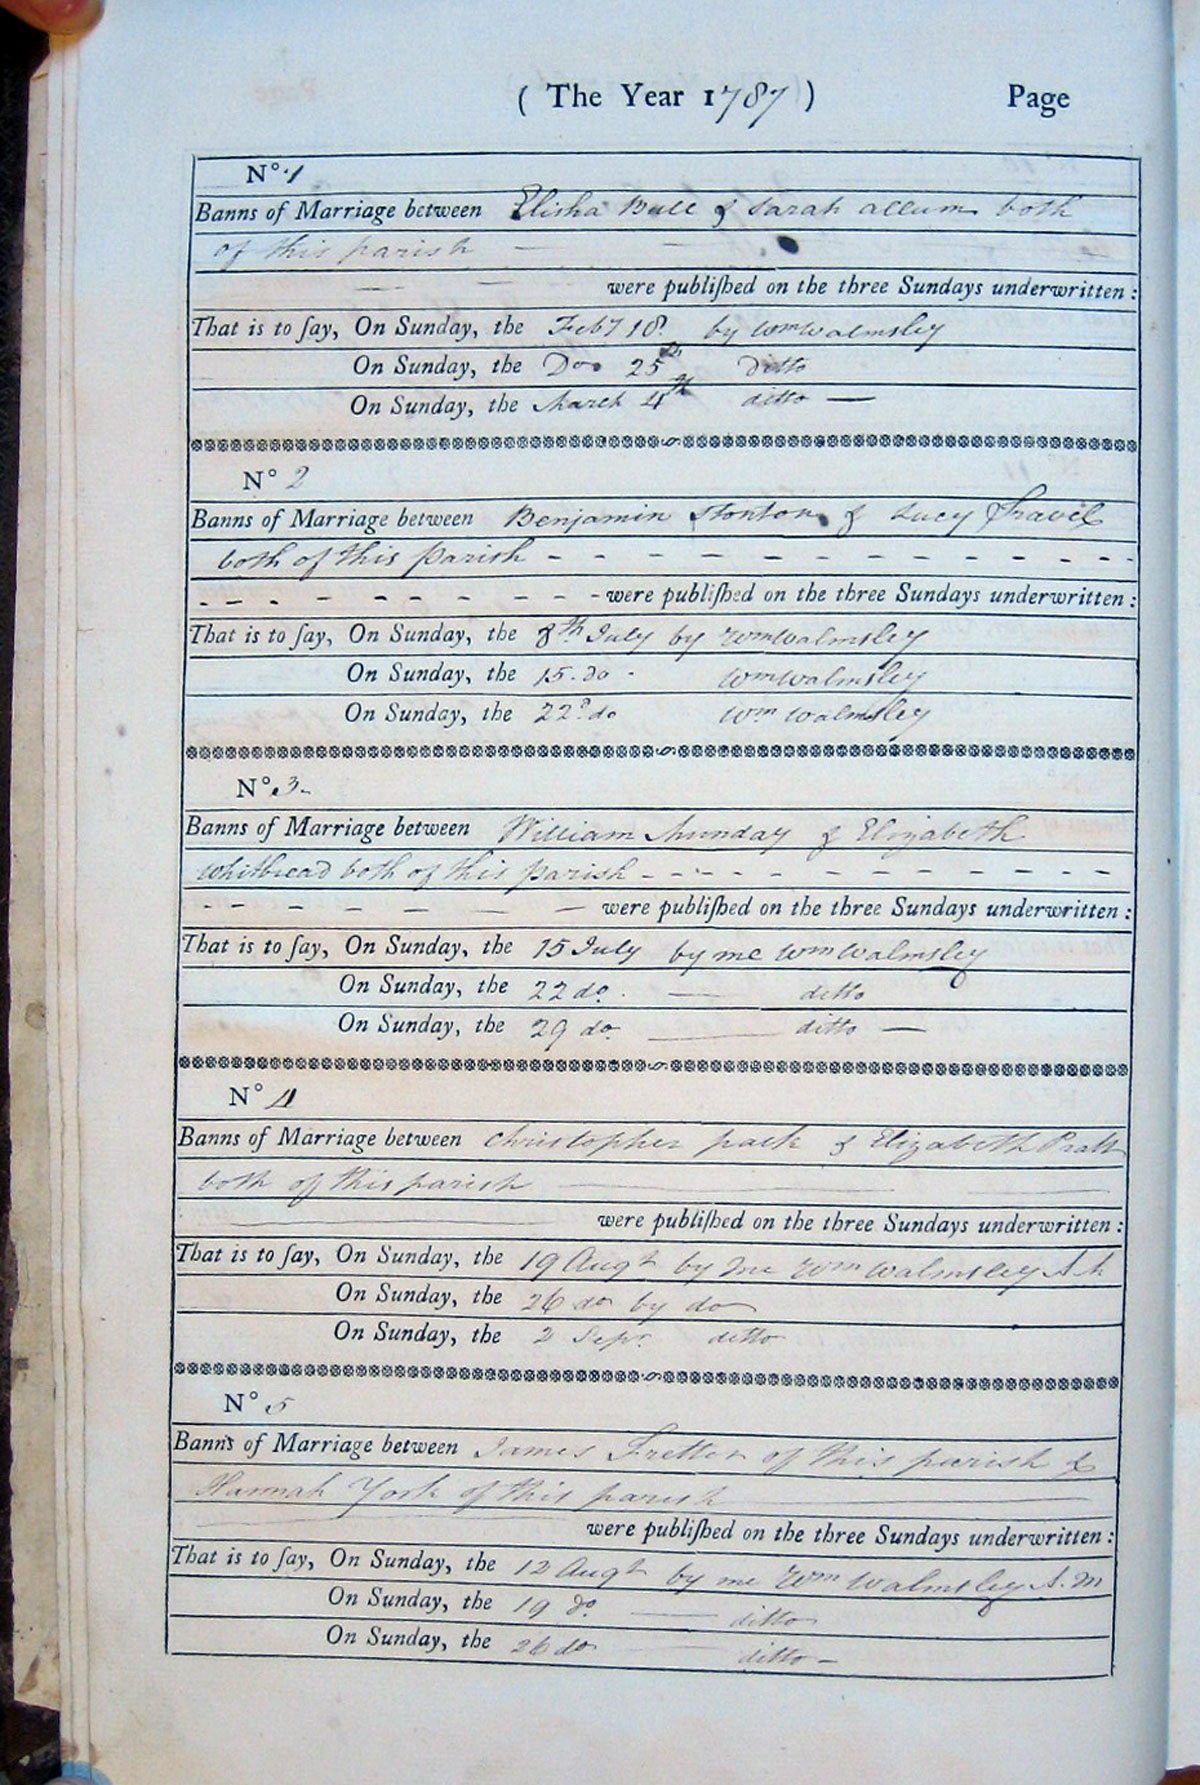 ( The Year 1787 ) Page
N° 1
Banns of Marriage between Elisha Bull & Sarah Allum both
of this parish
were publiſhed on the three Sundays underwritten :
That is to ſay, On Sunday, the Feby 18. by Wm Walmsley
On Sunday, the Do 25th ditto
On Sunday, the March 4th ditto —
N° 2
Banns of Marriage between Benjamin Stonton & Lucy
both of this parish
were publiſhed on the three Sundays underwritten :
That is to ſay, On Sunday, the 8th July by Wm Walmsley
On Sunday, the 15. do Wm Walmsley
On Sunday, the 22d do Wm Walmsley
N° 3
Banns of Marriage between William Munday & Elizabeth
Whitbread both of this parish
were publiſhed on the three Sundays underwritten :
That is to ſay, On Sunday, the 15 July by me Wm Walmsley
On Sunday, the 22 do. — ditto
On Sunday, the 29 do. — ditto —
N° 4
Banns of Marriage between Christopher & Elizabeth Pratt
both of this parish
were publiſhed on the three Sundays underwritten :
That is to ſay, On Sunday, the 19 Augt by me Wm Walmsley
On Sunday, the 26 do by do
On Sunday, the 2 Sepr. ditto
N° 5
Banns of Marriage between James Fretter of this parish &
Hannah York of this parish
were publiſhed on the three Sundays underwritten :
That is to ſay, On Sunday, the 12 Augt by me Wm Walmsley A.M
On Sunday, the 19 do. — ditto
On Sunday, the 26 do ditto —